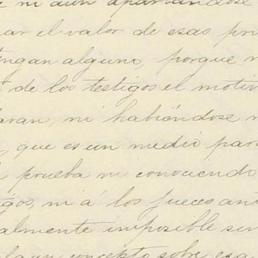 ni aun apartandose
ar el valor de esas pru
tengan alguno, porque n
de los testigos el motiv
laran, ni habiéndose n
, que es un medio para
prueba ni convenciendo
igos, ni á los jueces ant
almente imposible sin
un concepto sobre esa